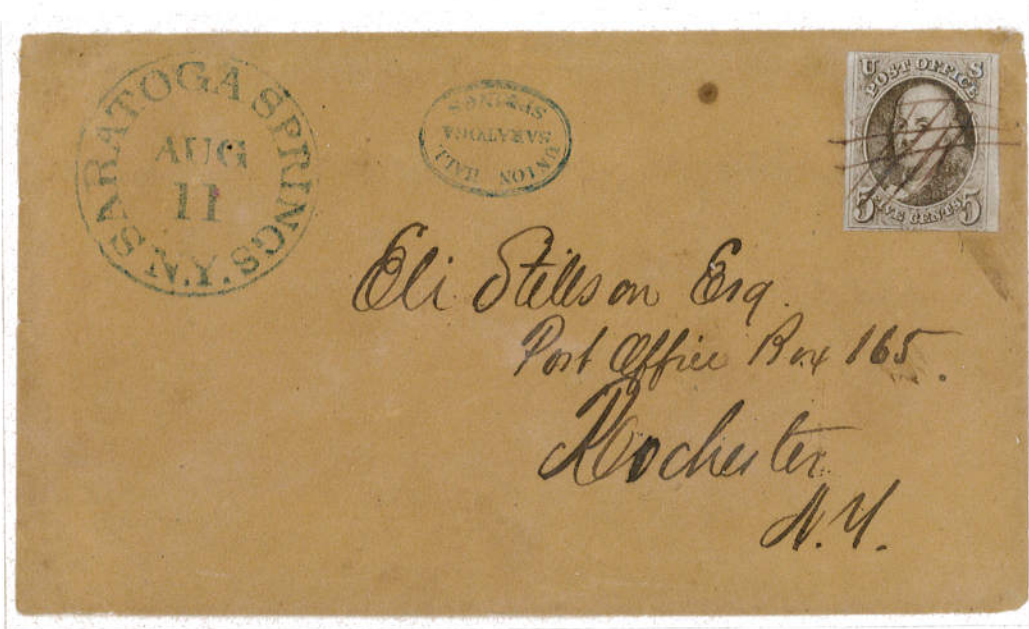 SARATOGA SPRINGS. N.Y.
AUG
11
UNION HALL
SARATOGA
SPRINGS
U S
POST OFFICE
FIVE CENTS
5 5
Eli Stillson Esq.
Post Office Box 165.
Rochester
N.Y.